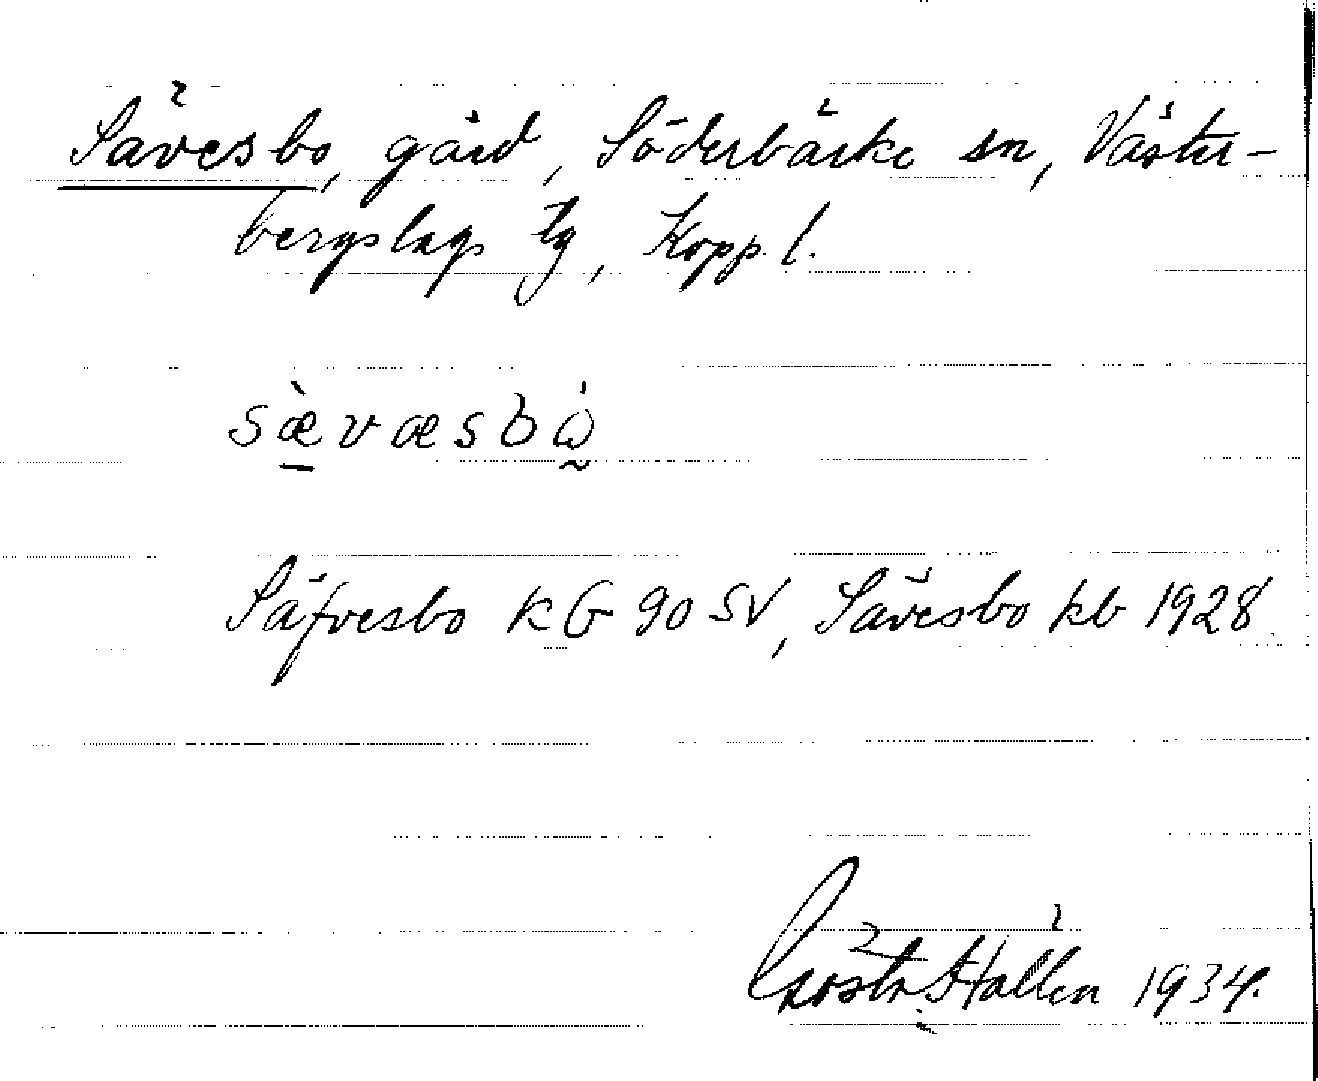 Sävesbo, gård, Söderbärke sn, Väster-
bergslags tg, Kopp. l.
sæ̀væsbò
Säfvesbo k G 90 SV, Sävesbo kb 1928
Gösta Hallén 1934.